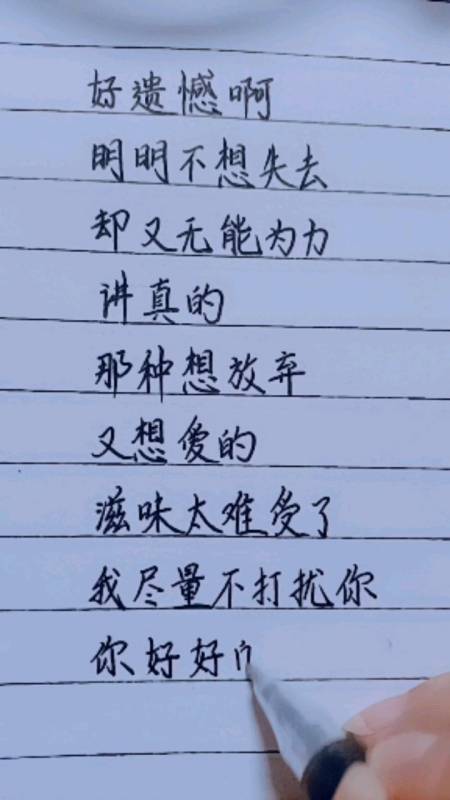 好遗憾啊
明明不想失去
却又无能为力
讲真的
那种想放弃
又想爱的
滋味太难受了
我尽量不打扰你
你好好